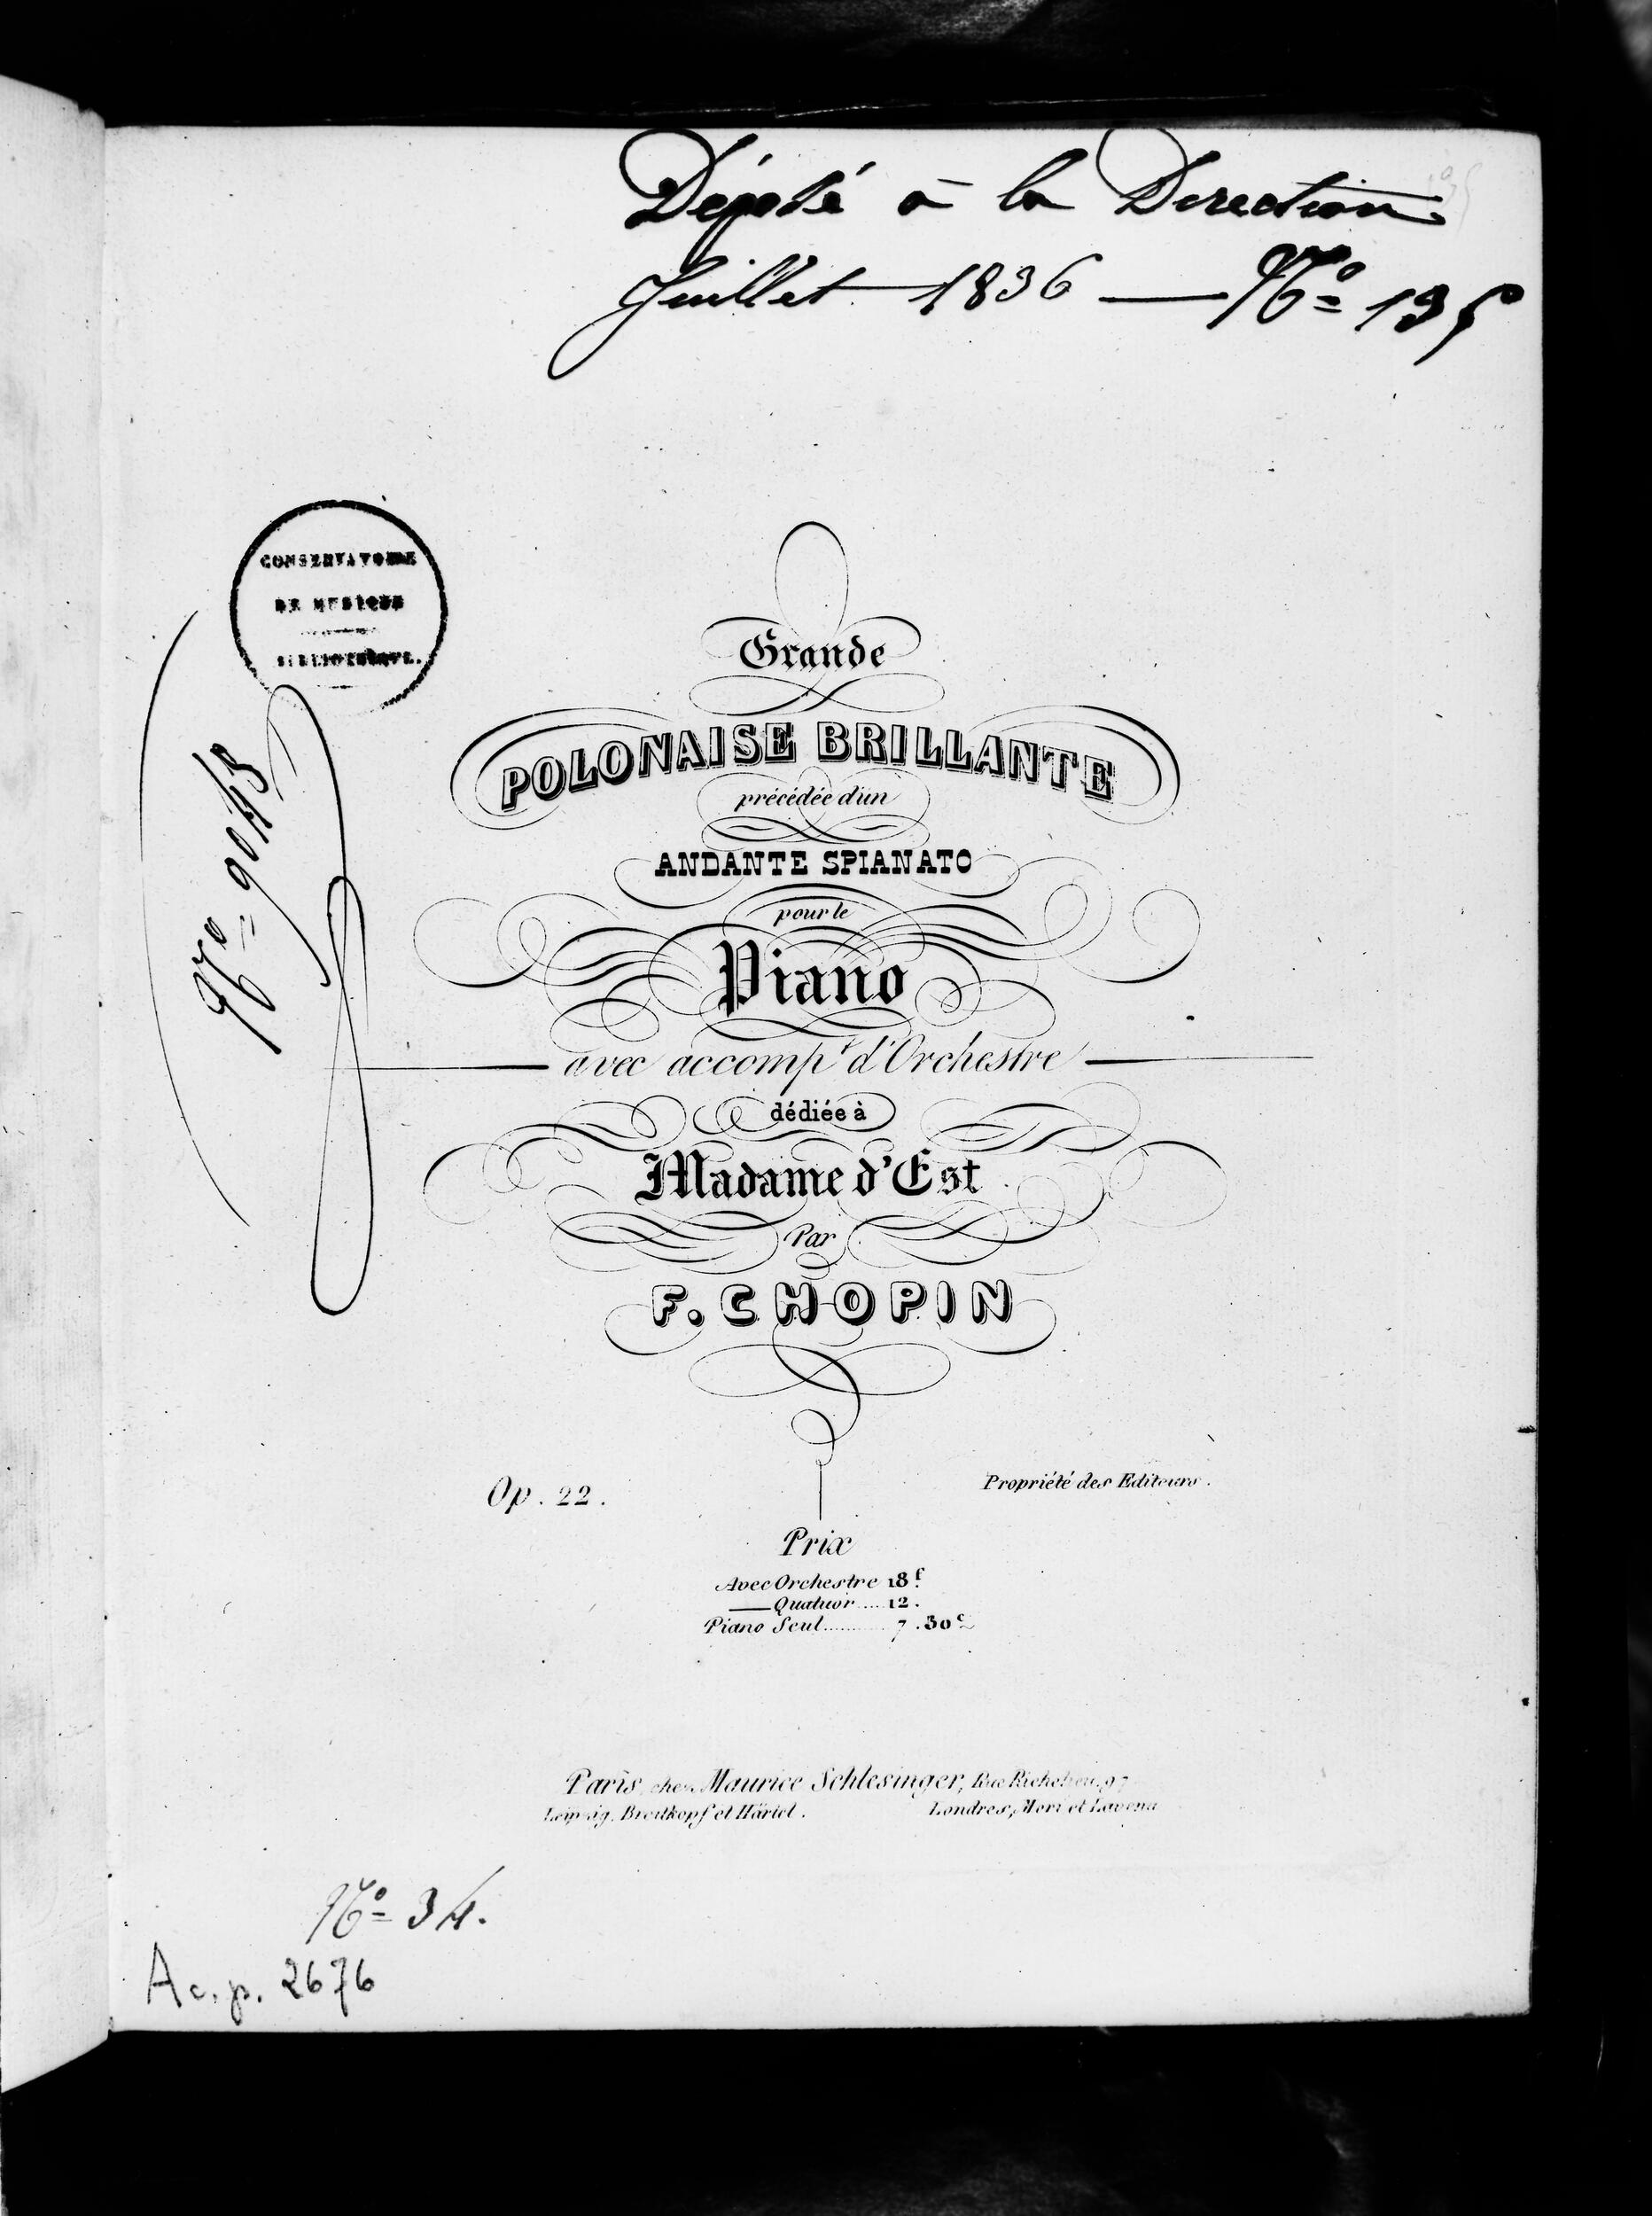 Déposé à la Direction
Juillet 1836 — Nº 195
CONSERVATOIRE
DE MUSIQUE
BIBLIOTHÈQUE.
Nº 9045
Grande
POLONAISE BRILLANTE
précédée d'un
ANDANTE SPIANATO
pour le
Piano
avec accompt d'Orchestre
dédiée à
Madame d'Est
Par
F. CHOPIN
Op. 22.
Propriété des Editeurs.
Prix
Avec Orchestre 18f.
— Quatuor .... 12.
Piano Seul.......... 7.50c
Paris, chez Maurice Schlesinger, Rue Richelieu, 97
Leipsig, Breitkopf et Härtel. Londres, Mori et Lavenu
Nº 34.
Ac. p. 2676